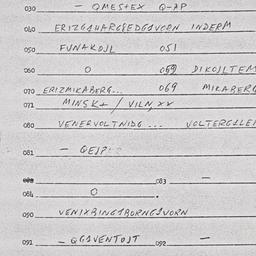 030 — QMES+EX Q-AP
040 ERIZGAHARGEEDGAVORN INDERM
050 FUNAKOJL 051
060 O 059 DIKOJLTEM
070 ERIZMIKABERG... 069 MIKABERG
071 MINSK+ / VILN,XX
080 VENERVOLTNIDG ... VOLTERGILE
081 — QEJP
083 —
084 O
090 VENIXBINGABORNGAVORN
091 — QGAVENTOJT 092 —